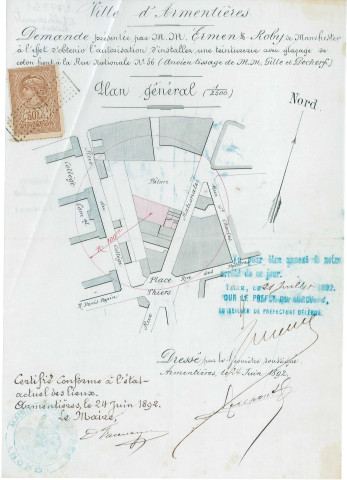 Ville d'Armentières
Demande présentée par M.M. Ermen & Roby de Manchester
à l'effet d'obtenir l'autorisation d'installer une teinturerie avec glaçage de
coton, sur la Rue Nationale No 56 (Ancien tissage de M.M. Gille et Decherf).
Plan Général (1/2500)
Nord
Collège
Com.al
Rue
du
Collège
Pature
R. 100
Nationale
Rue
Place
Thiers
Rue des
R. Denis Papin
Rue
Vu pour être annexé à notre
arrêté de ce jour.
Lille, le 21 Juillet 1892.
POUR LE PREFET DU NORD
LE CONSEILLER DE PREFECTURE DÉLÉGUÉ
Dressé par le Géomètre soussigné
Armentières, le 24 Juin 1892.
Certifié Conforme à l'état
actuel des lieux.
Armentières, le 24 Juin 1892.
Le Maire,